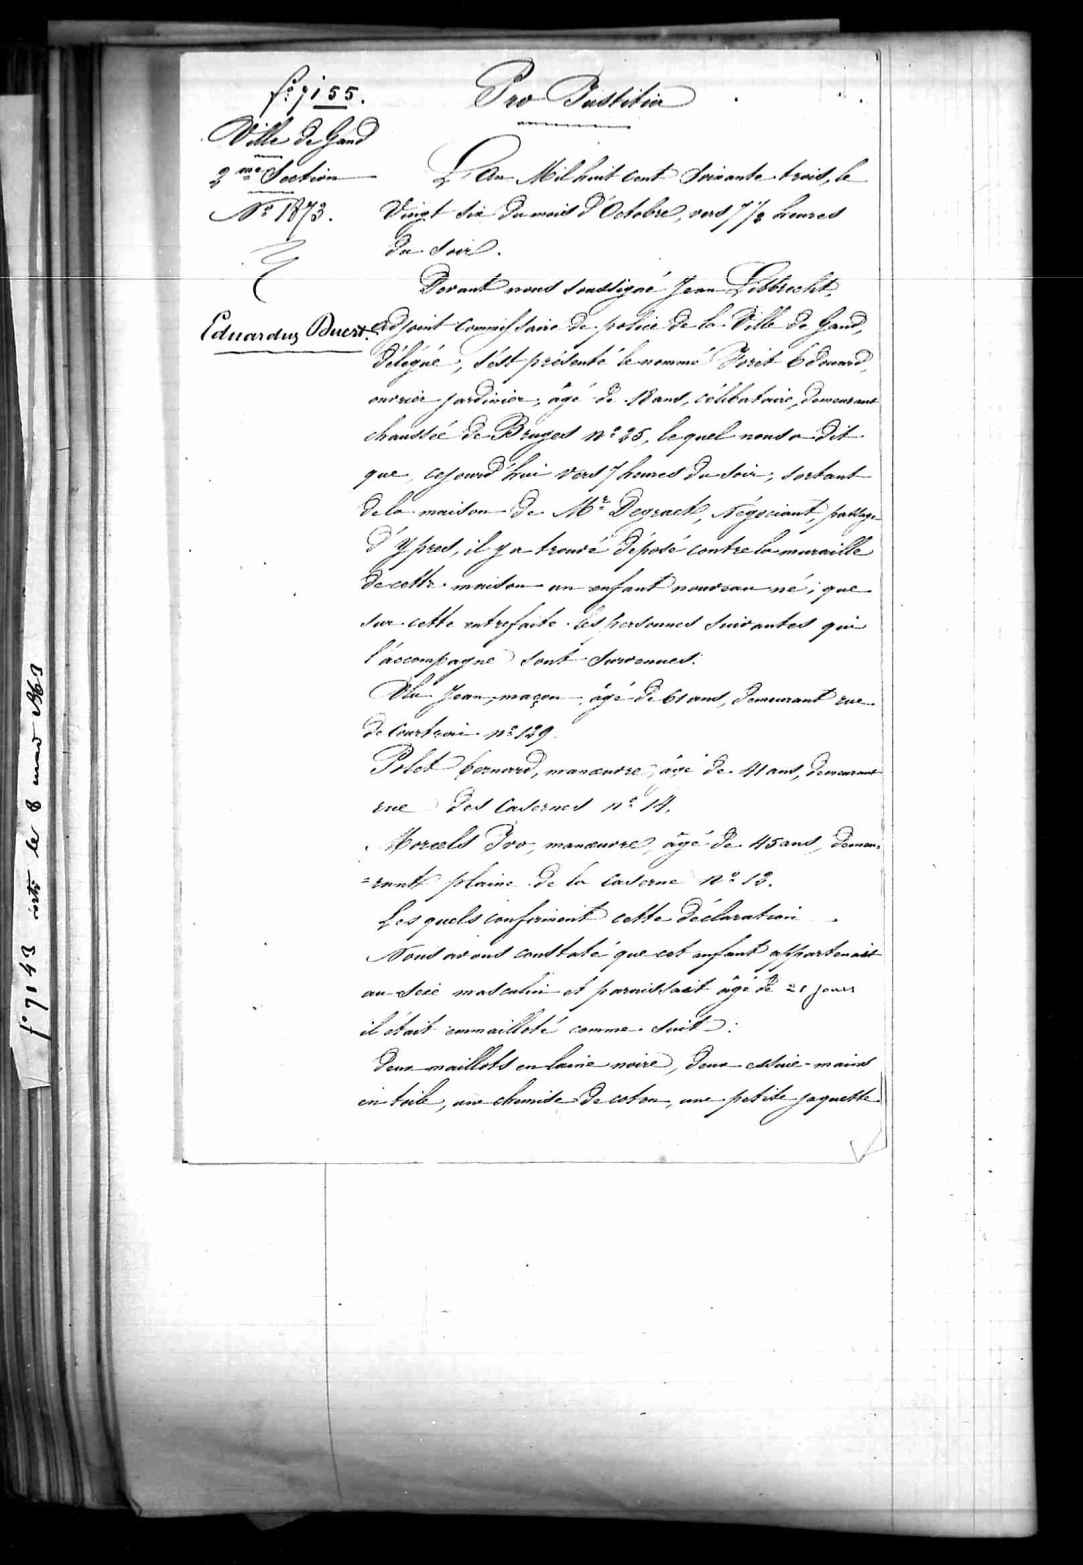 f° 7155.
Ville de Gand
2me Section
N° 1873.
Eduardus Buert.
Pro Justitia
L'An Mil huit cent soixante trois, le
vingt six du mois d'Octobre, vers 7 1/2 heures
du soir.
Devant nous soussigné Jean Libbrecht,
adjoint commissaire de police de la Ville de Gand,
délégué, s'est présenté le nommé Edouard,
ouvrier jardinier, âgé de 18 ans, célibataire, demeurant
chaussée de Bruges n° 25, lequel nous a dit
que cejourd'hui vers 7 heures du soir, sortant
de la maison de Mr Négociant, passage
d'Ypres, il y a trouvé déposé contre la muraille
de cette maison un enfant nouveau né; que
sur cette entrefaite les personnes suivantes qui
l'accompagne sont survenues.
Jean, maçon, âgé de 61 ans, demeurant rue
de Courtrai n° 129
Polet bernard, manœuvre, âgé de 41 ans, demeurant
rue des Casernes n° 14.
Morcels Ivo, manœuvre, âgé de 45 ans, demeu=
=rant plaine de la caserne n° 13.
Lesquels confirment cette déclaration
Nous avons constaté que cet enfant appartenait
au sexe masculin et paraissait âgé de 21 jours
il était emmailloté comme suit:
deux maillots en laine noire, deux essuie-mains
en toile, une chemise de coton, une petite jaquette
f° 7143 le 8 mars 1863